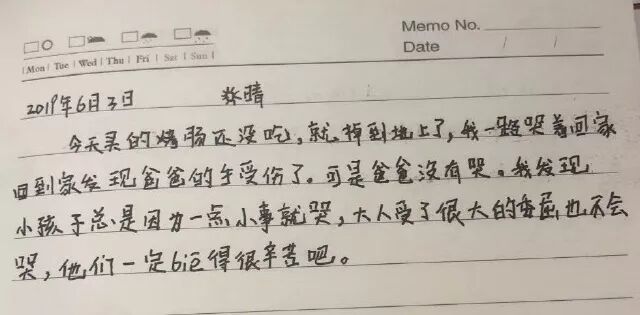 Memo No.
Date / /
Mon Tue Wed Thu Fri Sat Sun
2019年6月3日 晴
今天买的烤肠还没吃,就掉到地上了,我一路哭着回家
回到家发现爸爸的手受伤了。可是爸爸没有哭。我发现
小孩子总是因为一点小事就哭,大人受了很大的委屈也不会
哭,他们一定bie得很辛苦吧。